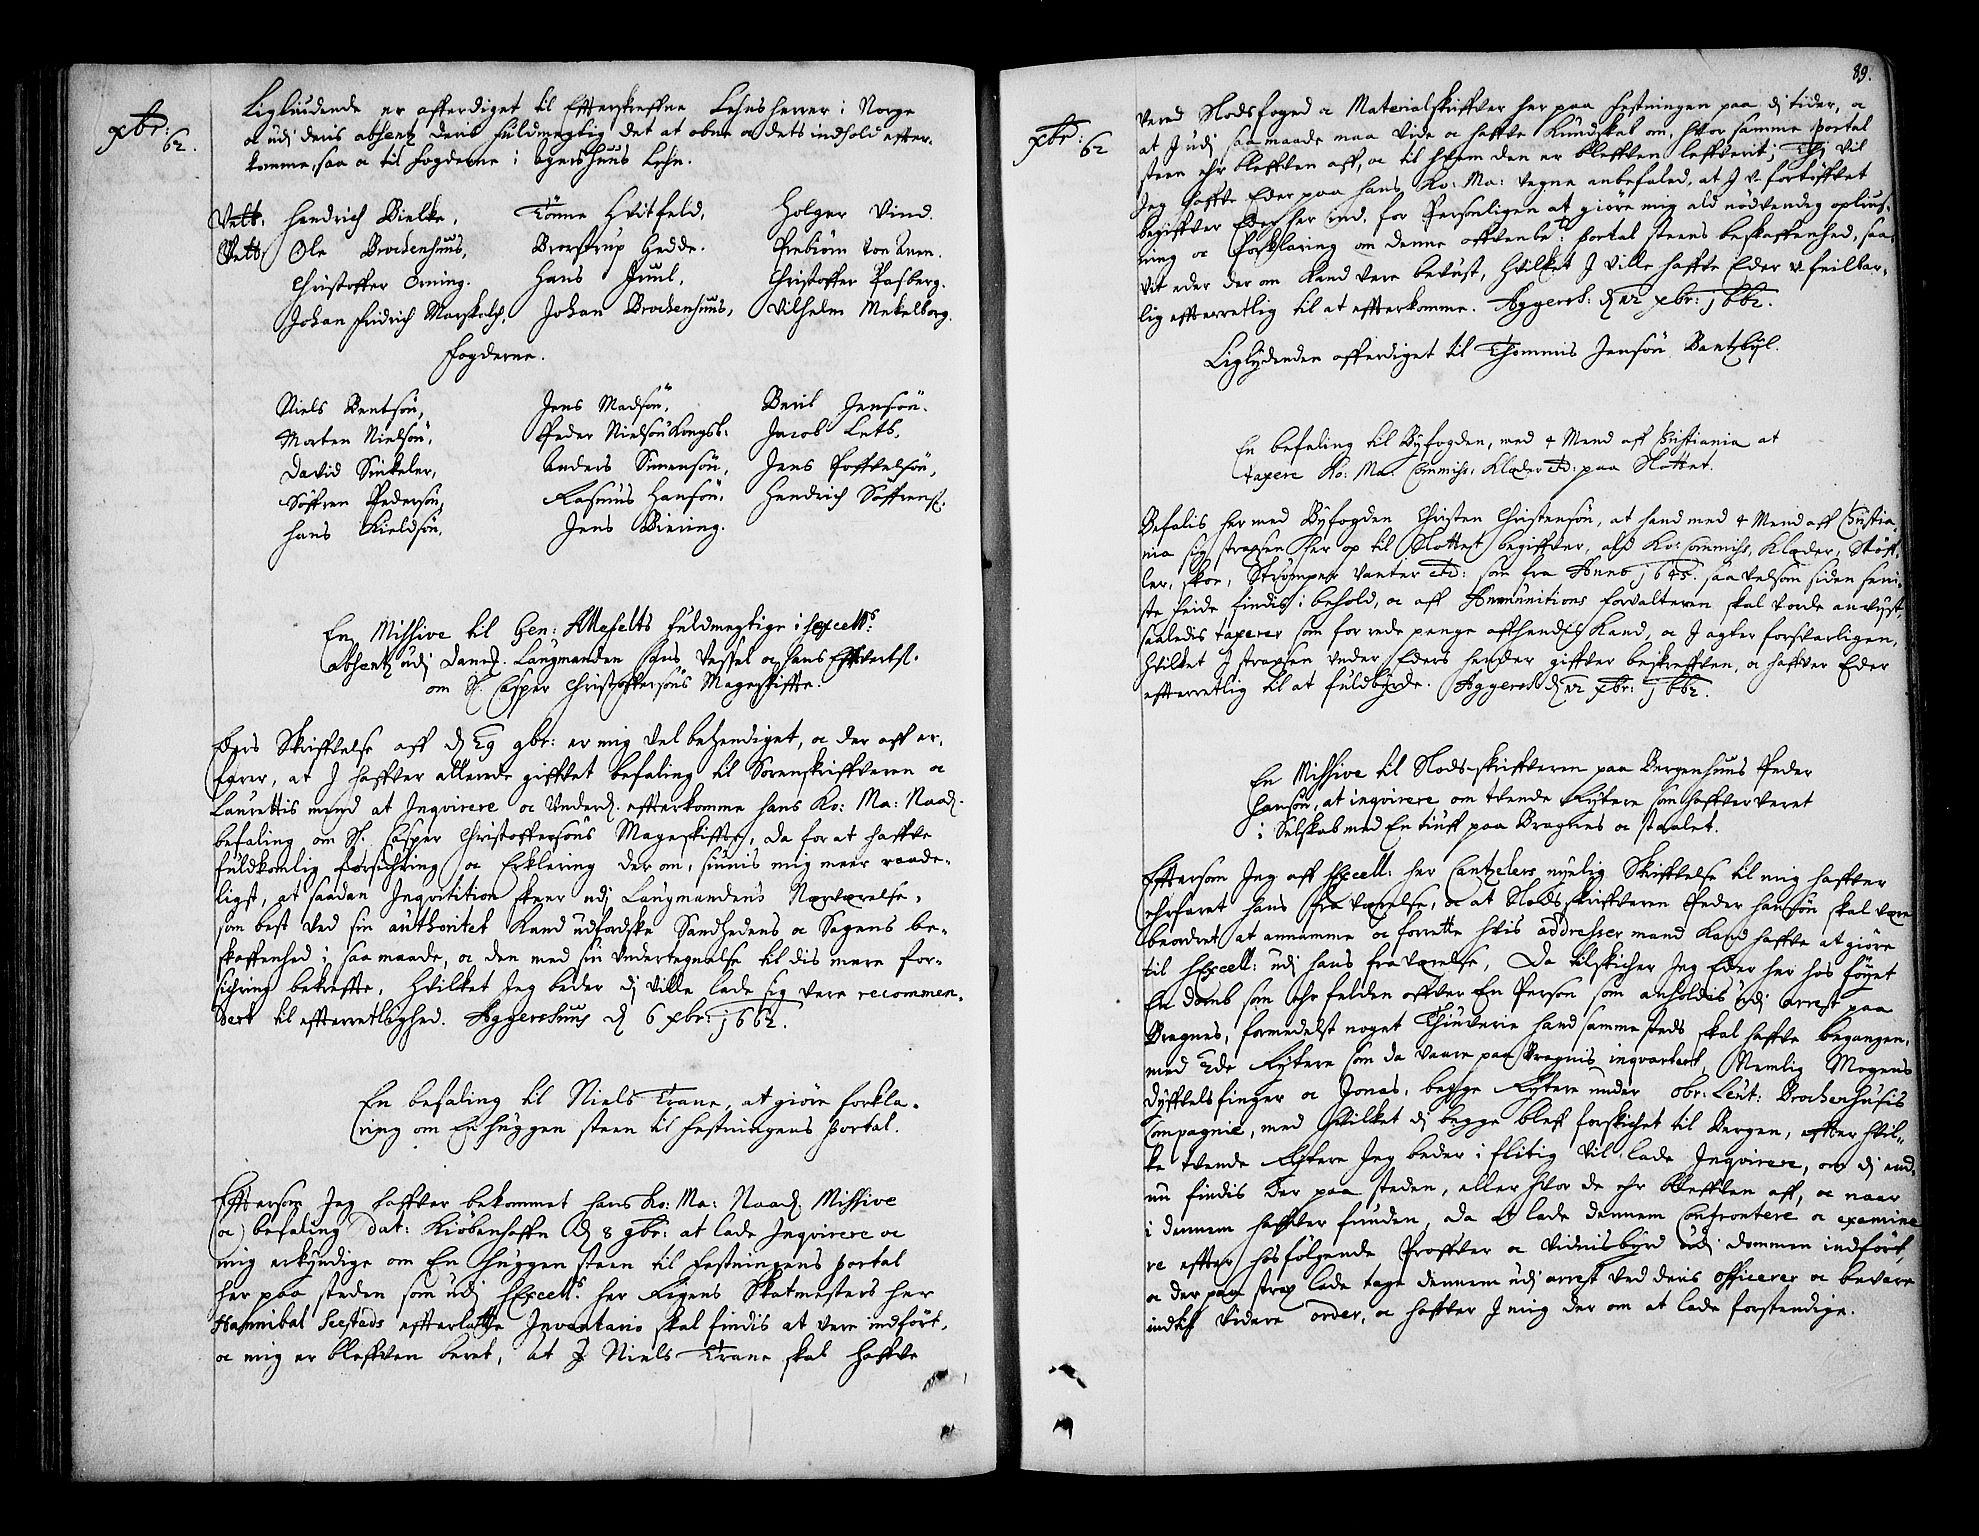 xbr:
62.
Ligliudende er afferdiget til Effterskreffne Lehnsherrer i Norge
oc udi deris absentz deris fuldmegtig det at obne oc dets indhold effter-
komme, saa oc til fogderne i Agershuus Lehn.
Velb: Hendrich Bielke, Tönne Hvitfeld, Holger Vind.
Velb: Ole Brockenhuus, Brostrup Gedde. Prebiörn von Anen.
Christoffer Orning. Hans Juul, Christoffer Pasberg.
Johan fridrich Marskalck, Johan Brockenhuus, Vilhelm Mekelborg.
Fogderne.
Niels Bentsön, Jens Madsön, Bent Jensön.
Morten Nielsön, Peder Nielsön Kongsb: Jacob Luth,
David Sinkeler, Anders Simensön, Jens Poffvelsön,
Söffren Pedersön, Rasmus Hansön, Hendrich Söffrens:
Hans Kieldsön, Jens Biering.
En Missive til Gen: fuldmegtige i hs Excells:
absentz udi Laugmanden Hans Vessel oc Hans Effvertss:
om H. Casper Christoffersöns Mageskiffte.
Eders Skriffvelse aff d 29 9br: er mig vel behendiget, oc der aff er-
farer, at J haffver allerede giffvet befaling til Sorenskriffveren oc
Laurettis mend at Inqvirere oc effterkomme hans Ko: Ma: Naad:
befaling om H. Casper Christoffersöns Mageskiffte, da for at haffve
fuldkomlig forsichring oc Erklering der om, siunis mig meer raade-
ligst, at saadan Inqvisition skeer udi Laugmandens Nærværelse,
som best ved sin authoritet kand udfordske Sandhedens oc Sagens be-
skaffenhed i saa maade, oc den med sin undertegnelse til dis mere for-
sichring bekreffte, Hvilket Jeg beder di ville lade sig vere recommen-
dert til effterretlighed. Aggershuus d 6 xbr: 1662.
En befaling til Niels Trane, at giöre forkla-
ring om En huggen steen til festningens Portal.
Effterson Jeg haffver bekommet hans Ko: Ma: Naad: Missive
oc befaling dat: Kiöbenhaffn d 8 9br: at lade Inqvirere oc
mig erkyndige om En huggen steen til festningens Portal
her paa steden som udi hs Excells: her Rigens Skatmesters her
Hannibal Seesteds effterlatte Inventario skal findis at vere indfört,
oc mig er bleffven beret, at J Niels Trane skal haffve
89.
xbr:
62
vered Slodsfoged oc Materialskriffver her paa festningen paa di tider, oc
at J udi saa maade maa vide oc haffve kundskab om, hvor samme Portal
steen ehr bleffven aff, oc til hvem den er bleffven leffverit; Thi vil
Jeg haffve Eder paa hans Ko: Ma: vegne anbefaled, at J u-fortöffvet
begiffver Eder her ind, for Personligen at giöre mig ald nödvendig oplius-
ning oc Forklaring om denne offvenbe: Portal steens beskaffenhed, saa-
vit eder der om kand vere bevust, Hvilket J ville haffve Eder u-feilbar-
lig effterretlig til at effterkomme. Aggersh: d 12 xbr: 1662.
Liglydenden afferdiget til Thommis Jensön Bantzböl.
En befaling til Byfogden, med 4 Mend aff Christiania at
taxere Ko: Ma: Commiss: Klæder etc: paa Slottet.
Befalis her med Byfogden Christen Christensön, at hand med 4 Mend aff Christia-
nia sig straxsen her op til Slottet begiffver, alt Ko: Commiss: Klæder, Stöff-
ler, skoe, Strömper vanter etc: som fra Anno 1645. saa velsom siden seni-
ste feide findis i behold, oc aff Ammunitions forvalteren skal vorde anvijst,
saaledis taxerer som for rede penge affhendis kand, oc J agter forsvarligen,
Hvilket J straxsen under Eders hender giffver beskreffven, oc haffver Eder
effterretlig til at fuldbyrde. Aggersh: d 12 xbr: 1662.
En Missive til Slods-skriffveren paa Bergenhuus Peder
Hansön, at inqvirere om tvende Rytere som haffver veret
i Selskab med En tiuff paa Bragnes oc staalet.
Effterson Jeg aff hs Excell: her Cantzelers nyelig Skriffvelse til mig haffver
ehrfaret hans fraværelse, oc at Slodsskriffveren Peder Hansön skal være
beordret at annamme oc forrette hvis addresser mand kand haffve at giöre
til hs Excell: udi hans fraværelse, Da tilskicher Jeg Eder her hos föyet
En domb som ehr felden offver En Person som anholdis udi arrest paa
Bragnes, formedelst noget Thiuverie hand sammesteds skal haffve begangen,
med 2de Rytere som da vaare paa Bragnis inqvartert, Nemlig Mogens
Dyffvelsfinger oc Jonas, begge Rytere under obr: Leut: Brockenhusis
Compagnie, med Hvilket di begge bleff forskichet til Bergen, effter hvil-
ke tvende Rytere Jeg beder i flitig vil lade Inqvirere, om di end-
nu findis der paa steden, eller hvor de ehr bleffven aff, oc naar
i dennem haffver funden, da at lade dennem Confrontere oc examine-
re effter hosfölgende Proffver oc vidnisbyrd udi dommen indfört,
oc der paa strax lade tage dennem udi arrest ved deris officerer oc bevare
indtil videre order, oc haffver J mig der om at lade forstendige.